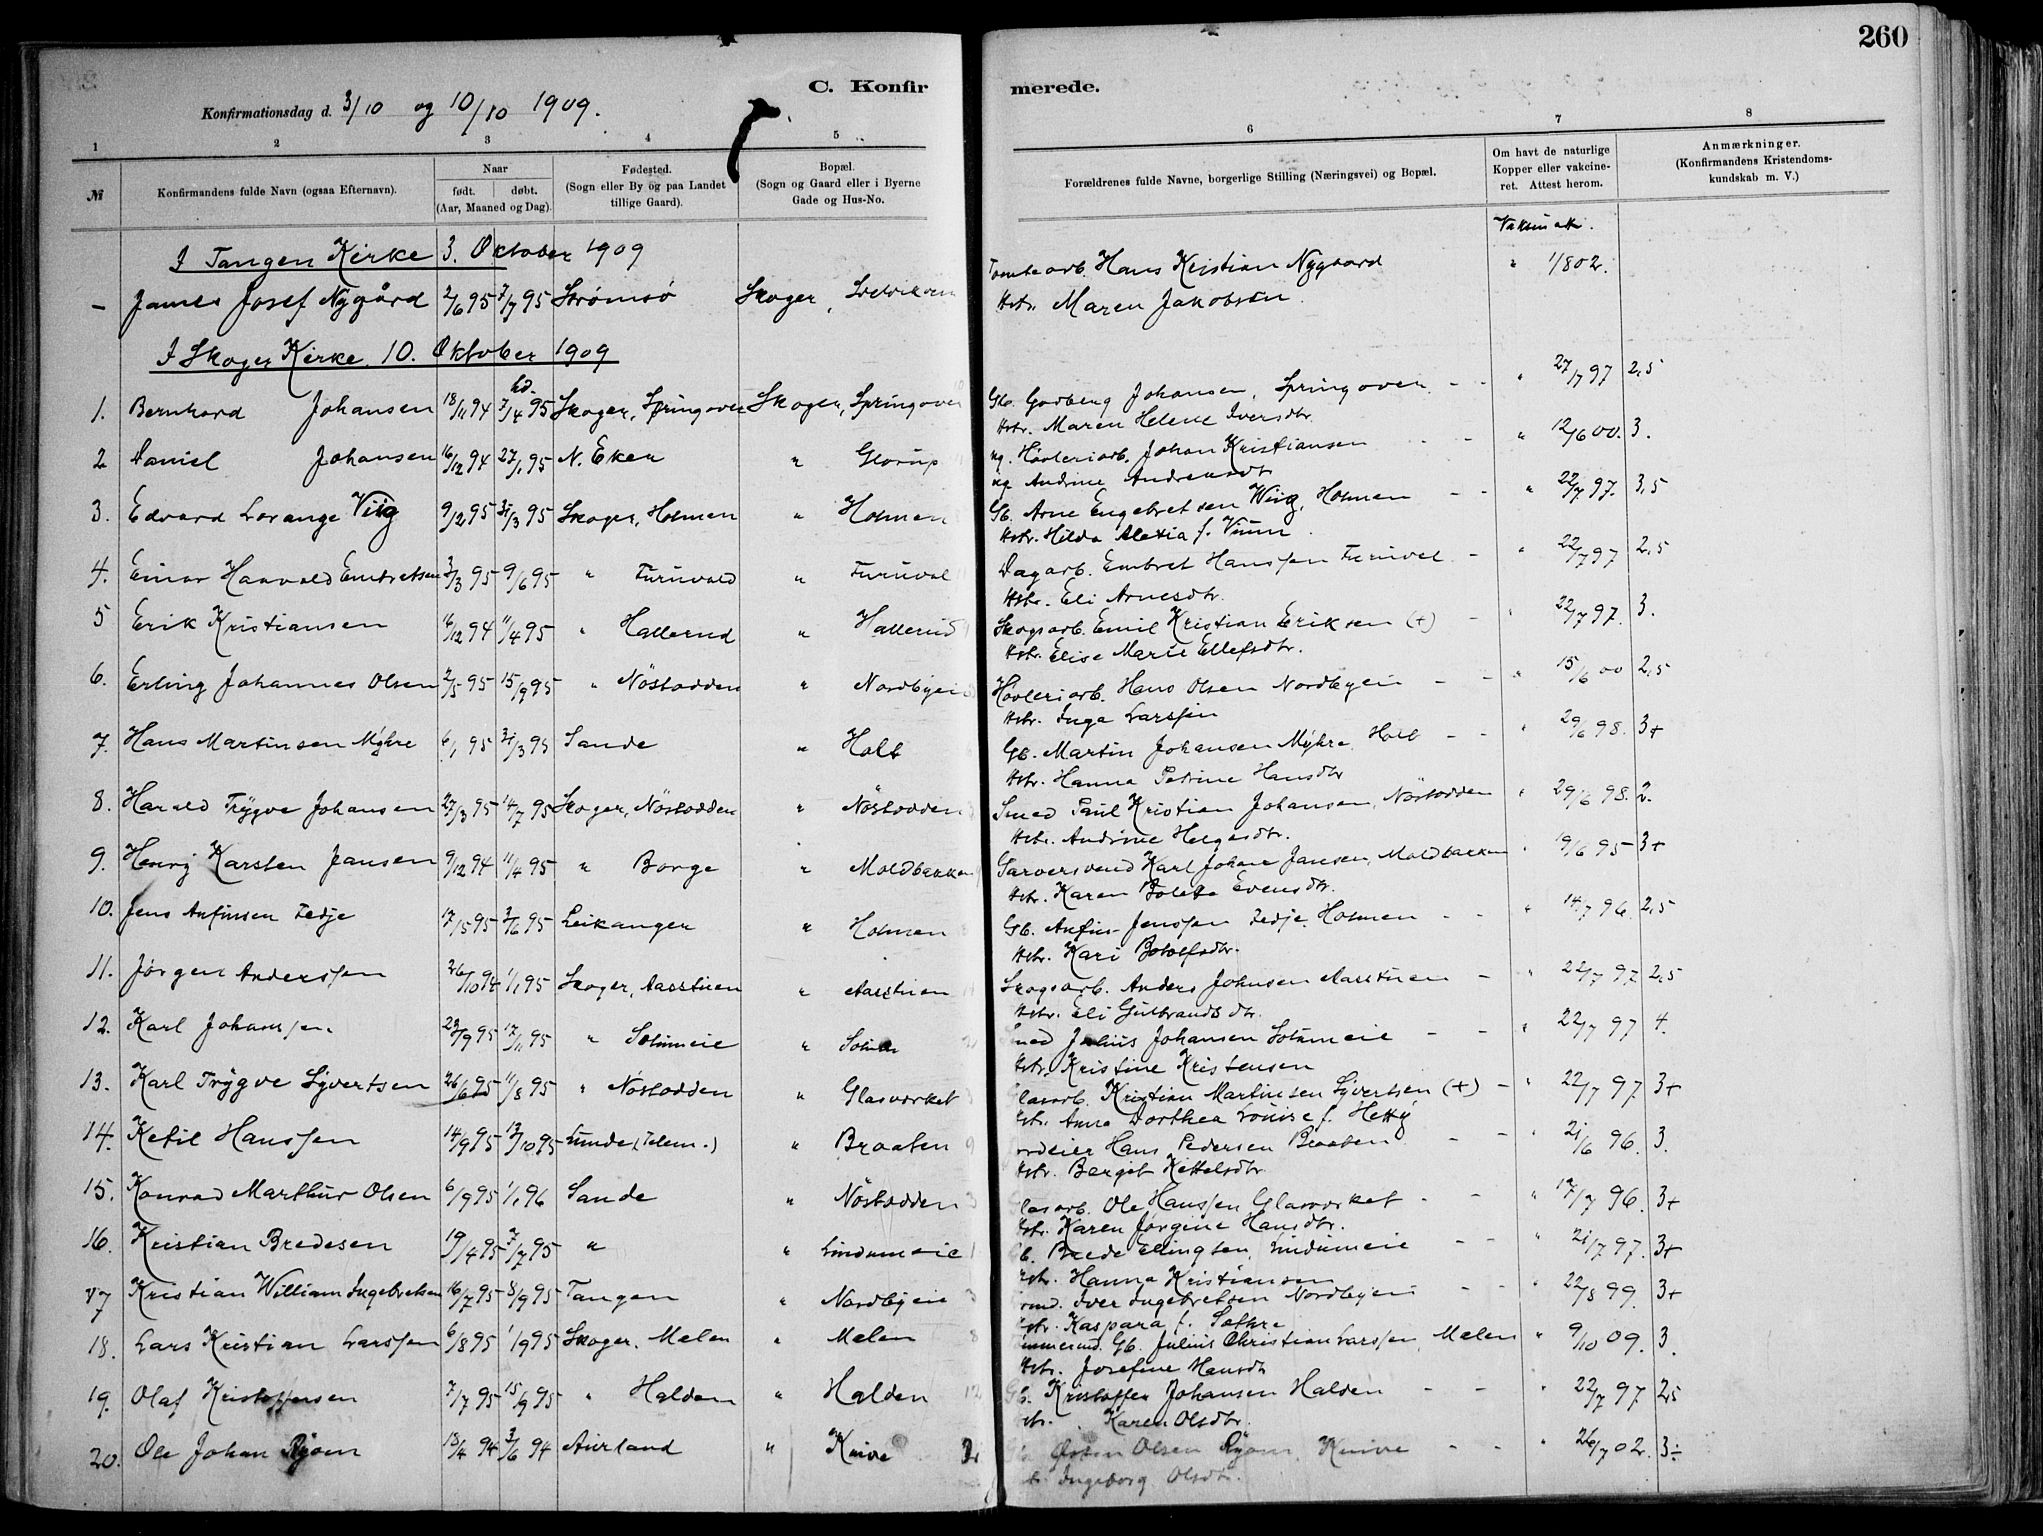 260
C. Konfirmerede.
Konfirmationsdag d. 3/10 og 10/10 1909.
1 2 3 4 5 6 7 8
№ Konfirmandens fulde Navn (ogsaa Efternavn). Naar født. døbt. (Aar, Maaned og Dag). Fødested. (Sogn eller By og paa Landet tillige Gaard). Bopæl. (Sogn og Gaard eller i Byerne Gade og Hus-No. Forældrenes fulde Navne, borgerlige Stilling (Næringsvei) og Bopæl. Om havt de naturlige Kopper eller vakcineret. Attest herom. Anmærkninger. (Konfirmandens Kristendomskundskab m. V.)
I Tangen Kirke 3. Oktober 1909
— James Josef Nygård 2/6 95 7/7 95 Strømsø Skoger, Hans Kristian Nygaard " 1/8 02.
Maren Jakobsen
I Skoger Kirke 10. Oktober 1909
1. Bernhard Johansen 18/11 94 hd. 7/4 95 Skoger, Springoven Skoger, Springoven Gb. Godberg Johansen, Springoven - - " 27/7 97 2,5
Hstr. Maren Helene Iversdtr
2 Daniel Johansen 16/12 94 27/1 95 N. Eker " Glorup ug. Høvleriarb. Johan Kristiansen - " 12/6 00. 3.
ug Andrine Andreasdtr
3. Edvard Lorange Viig 9/2 95 31/3 95 Skoger, Holmen " Holmen Gb. Arne Engebretsen Wiig, Holmen - - " 22/7 97. 3,5
Hstr. Hilda Alexia f.
4. Einar Haavald Embretsen 3/3 95 9/6 95 " Furuvald " Furuval Dagarb. Embret Hanssen Furuvel - " 22/7 97 2,5
Hstr. Eli Arnesdtr.
5 Erik Kristiansen 16/12 94 11/4 95 " Hallerud " Hallerud Skogsarb. Emil Kristian Eriksen (+) - " 22/7 97. 3.
Hstr. Elise Marie Ellefsdtr.
6. Erling Johannes Olsen 2/5 95 15/9 95 " Nöstodden " Nordbyeie Høvleriarb. Hans Olsen Nordbyein - - " 15/6 00 2,5
Hstr. Inga Larssen
7. Hans Martinsen Myhre 6/1 95 31/3 95 Sande " Holt Gb. Martin Johansen Myhre, Holt - - " 29/6 98. 3+
Hstr. Hanna Petrine Hansdtr
8. Harald Trygve Johansen 27/3 95 14/7 95 Skoger, Nöstodden " Nöstodden Smed Paul Kristian Johansen, Nöstodden " 29/6 98. 2.
Hstr. Andrine Helgesdtr.
9. Henry Karsten Jansen 9/12 94 11/4 95 " Borge " Moldbakken Garversvend Karl Johan Jansen, Moldbakken " 19/6 95 3+
Hstr. Karen Bolette Evensdtr.
10. Jens Anfinsen Tedje 17/1 95 3/6 95 Leikanger " Holmen Gb. Anfin Jenssen Tedje, Holmen - - " 14/7 96. 2,5
Hstr. Kari Botolfsdtr.
11. Jørgen Anderssen 26/10 94 1/1 95 Skoger, Aasstuen " Aasstuen Skogsarb. Anders Johnsen Aasstuen - " 22/7 97. 2,5
Hstr. Eli Gulbrandsdtr.
12. Karl Johanssen. 23/9 95 17/11 95 " Solumeie " Solum Smed Julius Johansen Solumeie - - " 22/7 97 4.
Hstr. Kristine Kristensen
13. Karl Trygve Syvertsen 26/6 95 11/8 95 " Nöstodden " Glasverket Glasarb. Kristian Martinsen Syvertsen (+) - " 22/7 97. 3+
Hstr. Anna Dorthea Louise f. Hetty
14. Ketil Hanssen 14/9 95 13/10 95 Lunde (Telem.) " Braaten Hans Pedersen Braaten - - " 21/6 96. 3.
Hstr. Bergit Kettelsdtr
15. Konrad Marthur Olsen 6/9 95 1/1 96 Sande " Nöstodden Glasarb. Ole Hanssen Glasverket - - " 17/7 96. 3+
Hstr. Karen Jørgine Hansdtr.
16. Kristian Bredesen 19/4 95 7/7 95 " " Lindumeie Gb. Brede Ellingsen, Lindumeie - - " 21/7 97. 3+
Hstr. Hanna Kristiansen
17 Kristian William Ingebretsen 16/7 95 8/9 95 Tangen " Nordbyeie Iver Ingebretsen Nordbyein - - " 22/8 99. 3+
Hstr. Kaspara f. Sothre
18. Lars Kristian Larssen 6/8 95 1/9 95 Skoger, Melen " Melen Gb. Julius Christian Larssen, Melen " 9/10 09. 3.
Hstr. Josefine Hansdtr
19. Olaf Kristoffersen 7/7 95 15/9 95 " Halden " Halden Gb. Kristoffer Johansen Halden - - " 22/7 97 2,5
Hstr. Karen Olsdtr.
20. Ole Johan Ryom 18/4 94 3/6 94 Aurland " Knive Gb. Østen Olsen Ryom, Knive - - " 26/7 02. 3÷
Hstr. Ingeborg Olsdtr.